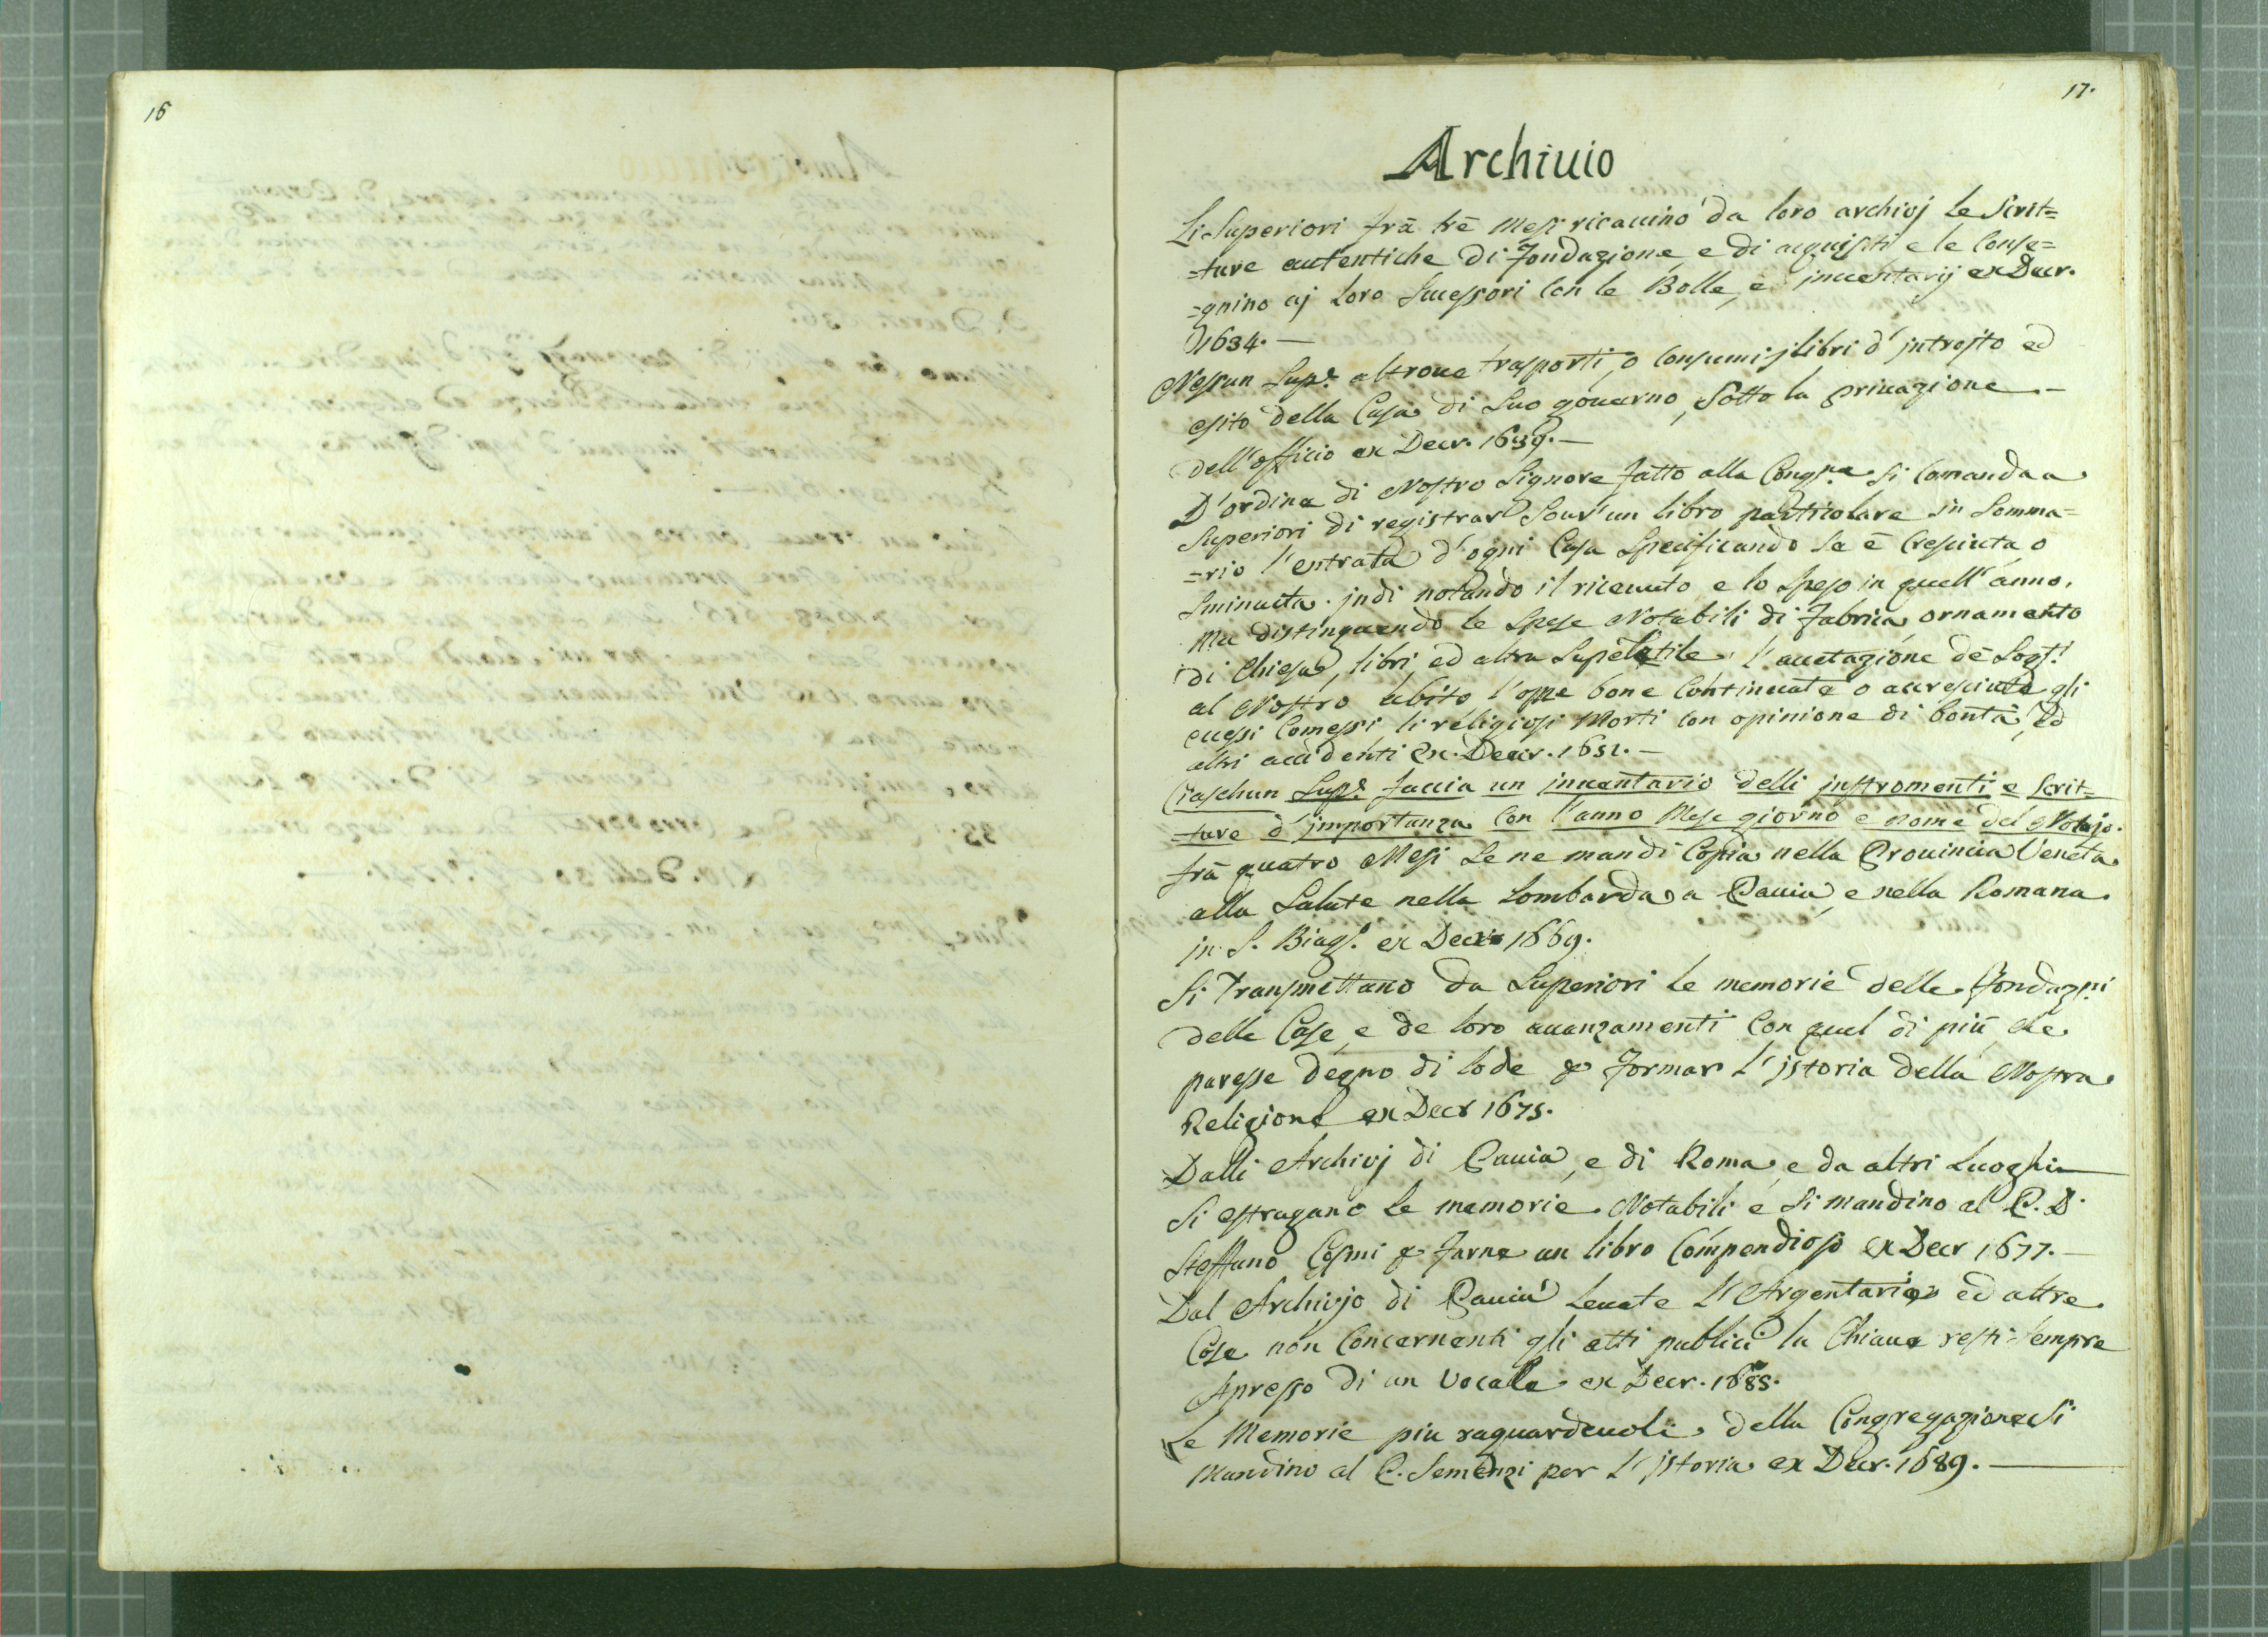 16
17.
Archiuio
Li Superiori frà trè mesi ricauino da loro archivj le scrit=
=ture autentiche di fondazione e di acquisti e le conse=
=gnino aj loro Successori con le Bolle, è inuentarij ex Decr.
1634. —
Nessun Supe. altroue trasporti, o consumi j libri d'introito ed
esito della Casa di suo gouerno, sotto la priuazione —
dell'officio ex Decr. 1639. —
D'ordine di Nostro Signore fatto alla Congne. si comanda a
Superiori di registrar sour'un libro particolare in somma=
=rio l'entrata d'ogni Casa specificando se è cresciuta o
sminuita. indi notando il riceuuto e lo speso in quell'anno,
ma distinguendo le spese Notabili di fabrica, ornamento
di Chiesa, libri ed altra supeletile, l'accetazione dè Sogti.
al Nostro abito l'opre bone continuate o accresciute gli
ecessi comessi li religiosi morti con opinione di bontà, ed
altri accidenti ex Decr. 1651. —
Ciaschun Supe. faccia un inuentario delli instromenti e scrit=
=ture d'importanza con l'anno Mese giorno e nome del Notajo.
frà quatro Mesi se ne mandi Copia nella Prouincia Veneta
alla Salute nella Lombarda a Pauia, e nella Romana
in S. Biago. ex Decr. 1669.
Si Transmettano da Superiori le memorie delle fondazni.
delle Case, e de loro auanzamenti con quel di più, che
paresse degno di lode p formar l'istoria della Nostra
Religione ex Decr 1675.
Dalli Archivj di Pauia, e di Roma, e da altri Luoghi —
si estragano le memorie Notabili e si mandino al P. D.
Steffano Cosmi p farne un libro Compendioso ex Decr 1677. —
Dal Archivjo di Pauia leuate l'Argentarie ed altre
Cose non Concernenti gli atti publici la Chiaue resti sempre
apresso di un Vocale ex Decr. 1685.
Le Memorie piu raguardeuoli della Congregazione si
mandino al P. Semenzi per l'istoria ex Decr. 1689. —